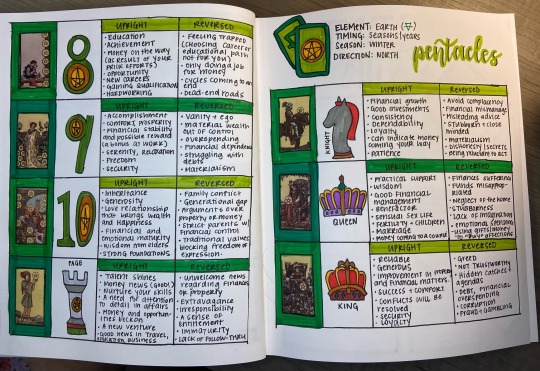 UPRIGHT
• Education
• Achievement
• Money on the way
(as result of your
prior efforts)
• Opportunity
• New careers
• Gaining qualification
• Hardworking
REVERSED
• Feeling trapped
(choosing career or
educational path
not for you)
• Only doing a job
for money
• Cycles coming to an
end
• Dead-end roads
8
UPRIGHT
• Accomplishment
• Comfort, prosperity
• Financial stability
and possible reward
(a bonus at work)
• Serenity, relaxation
• Freedom
• Security
REVERSED
• Vanity + ego
• Material wealth
out of control
• Overspending
• Financial dependence
• Struggling with
debts
• Materialism
9
UPRIGHT
• Inheritance
• Generosity
• Love relationship
that brings wealth
and happiness
• Financial and
emotional maturity
• Wisdom from elders
• Strong foundations
REVERSED
• Family conflict
• Generational gap
• Arguments over
property or money
• Strict parents w/
financial control
• Traditional values
blocking freedom of
expression.
10
PAGE
UPRIGHT
• Talent shines
• Money news (good)
• Nurture your skills
• A need for attention
to detail in affairs
• Money and opportun-
ities beckon
• A new venture
• Good news in travel,
education, business
REVERSED
• Unwelcome news
regarding finances
or property
• Extravagance
• Irresponsibility
• A sense of
entitlement
• Immaturity
• Lack of follow-thru
ELEMENT: EARTH
TIMING: SEASONS/YEARS
SEASON: WINTER
DIRECTION: NORTH
pentacles
KNIGHT
UPRIGHT
• Financial growth
• Good investments
• Consistency
• Dependability
• Loyalty
• Can indicate money
coming your way
• Patience
REVERSED
• Avoid complacency
• Financial mismanage
• Misleading advice
• Stubborn + close
minded
• Materialism
• Dishonesty/secrets
• Being reluctant to act
QUEEN
UPRIGHT
• Practical support
• Wisdom
• Good financial
management
• Benefactor
• Sensual sex life
• Fertility + children
• Marriage
• Money coming to a couple
REVERSED
• Finances suffering
• Funds misapprop-
riated
• Neglect to the home
• Stubbornness
• Lack of imagination
• Emotional spending
using gifts/money
to "buy" affections
KING
UPRIGHT
• Reliable
• Generous
• Improvement in property
and financial matters.
• Success + comfort
• Conflicts will be
resolved
• Security
• Loyalty
REVERSED
• Greed
• Not trustworthy
• Hidden catches +
agendas
• Debt, financial
overspending
• Corruption
• Fraud + gambling